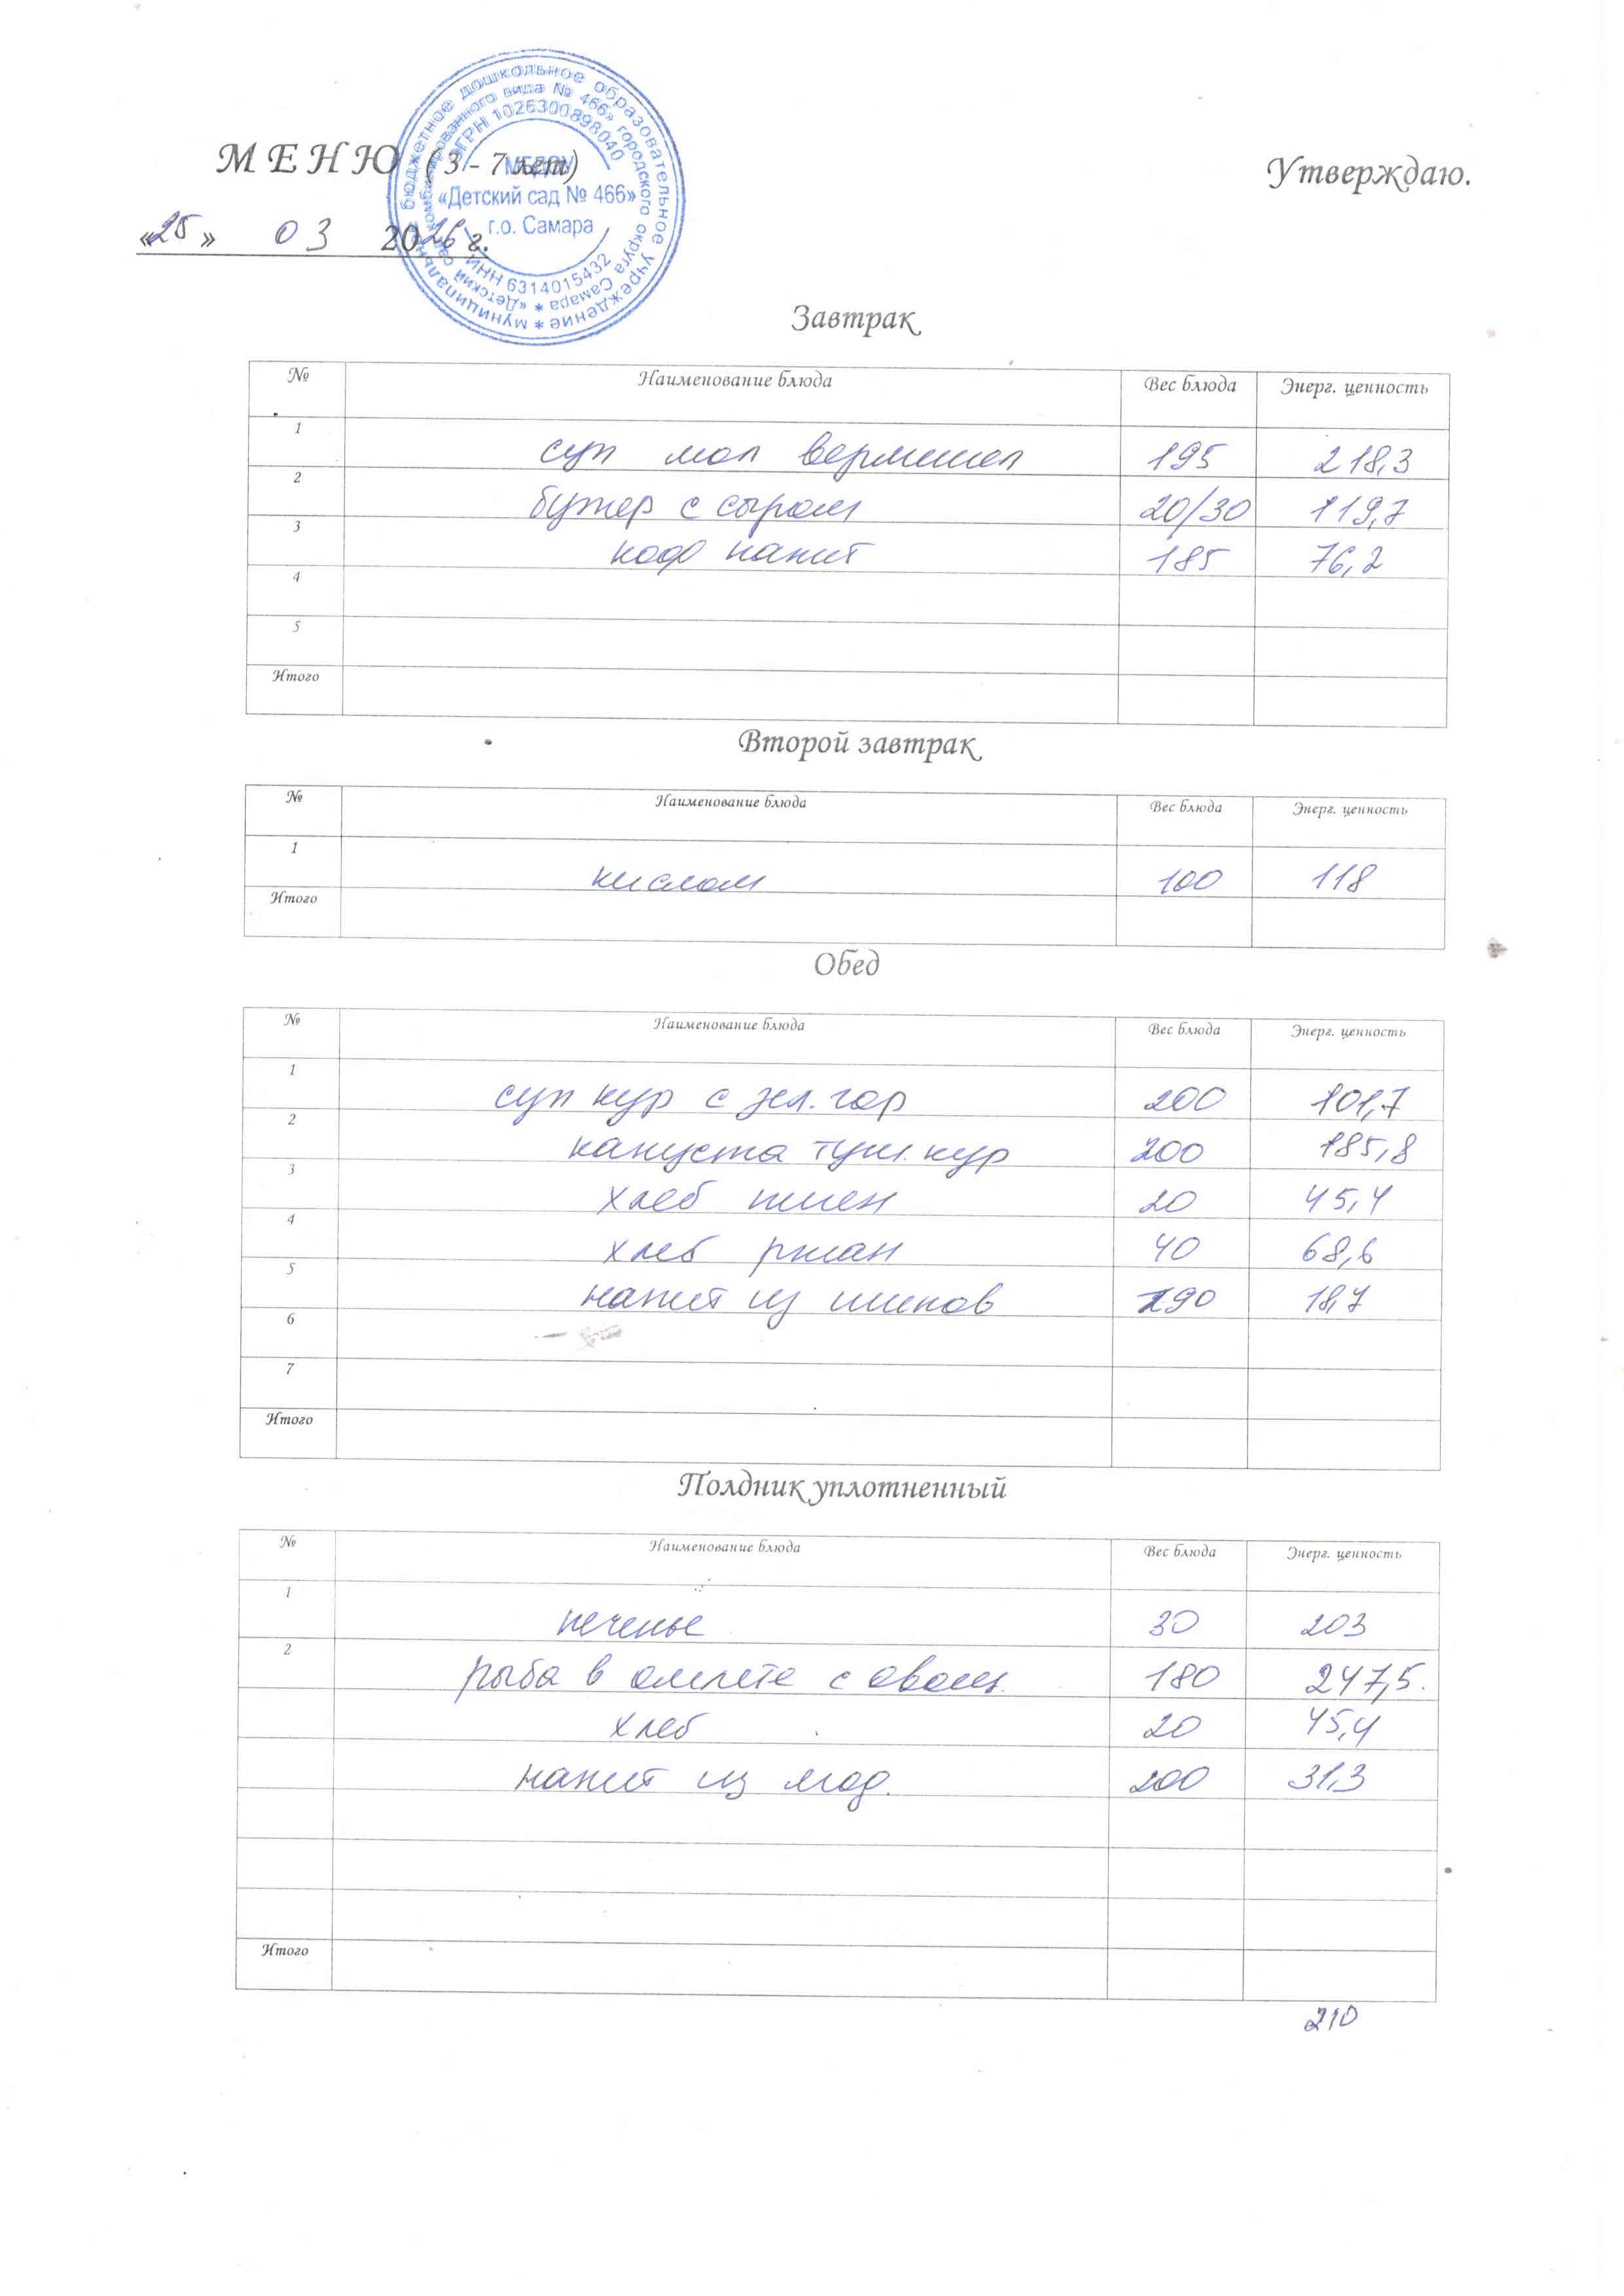 МЕНЮ (3 - 7 лет)
Утверждаю.
«25» 03 2026 г.
муниципальное бюджетное дошкольное образовательное учреждение *
«Детский сад комбинированного вида № 466» городского округа Самара *
ОГРН 1026300898040
МБДОУ
«Детский сад № 466»
г.о. Самара
ИНН 6314015432
Завтрак
№ Наименование блюда Вес блюда Энерг. ценность
1 суп мол вермишел 195 218,3
2 бутер с сыром 20/30 119,7
3 коф напит 185 76,2
4
5
Итого
Второй завтрак
№ Наименование блюда Вес блюда Энерг. ценность
1 кислом 100 118
Итого
Обед
№ Наименование блюда Вес блюда Энерг. ценность
1 суп кур с зел. гор 200 101,7
2 капуста туш. кур 200 185,8
3 хлеб пшен 20 45,4
4 хлеб ржан 40 68,6
5 напит из шипов 190 18,7
6
7
Итого
Полдник уплотненный
№ Наименование блюда Вес блюда Энерг. ценность
1 печенье 30 203
2 рыба в омлете с овощ. 180 247,5.
хлеб 20 45,4
напит из ягод. 200 31,3
Итого
210